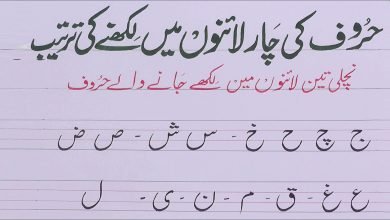 حُرُوف کی چَار لائنوں میں لِکھنے کی تَرتِیب
نِچلی تِین لائنوں مِین لِکھے جَانے وَالے حُرُوف
ج چ ح خ - س ش - ص ض
ع غ - ق - م - ن - ی - ل